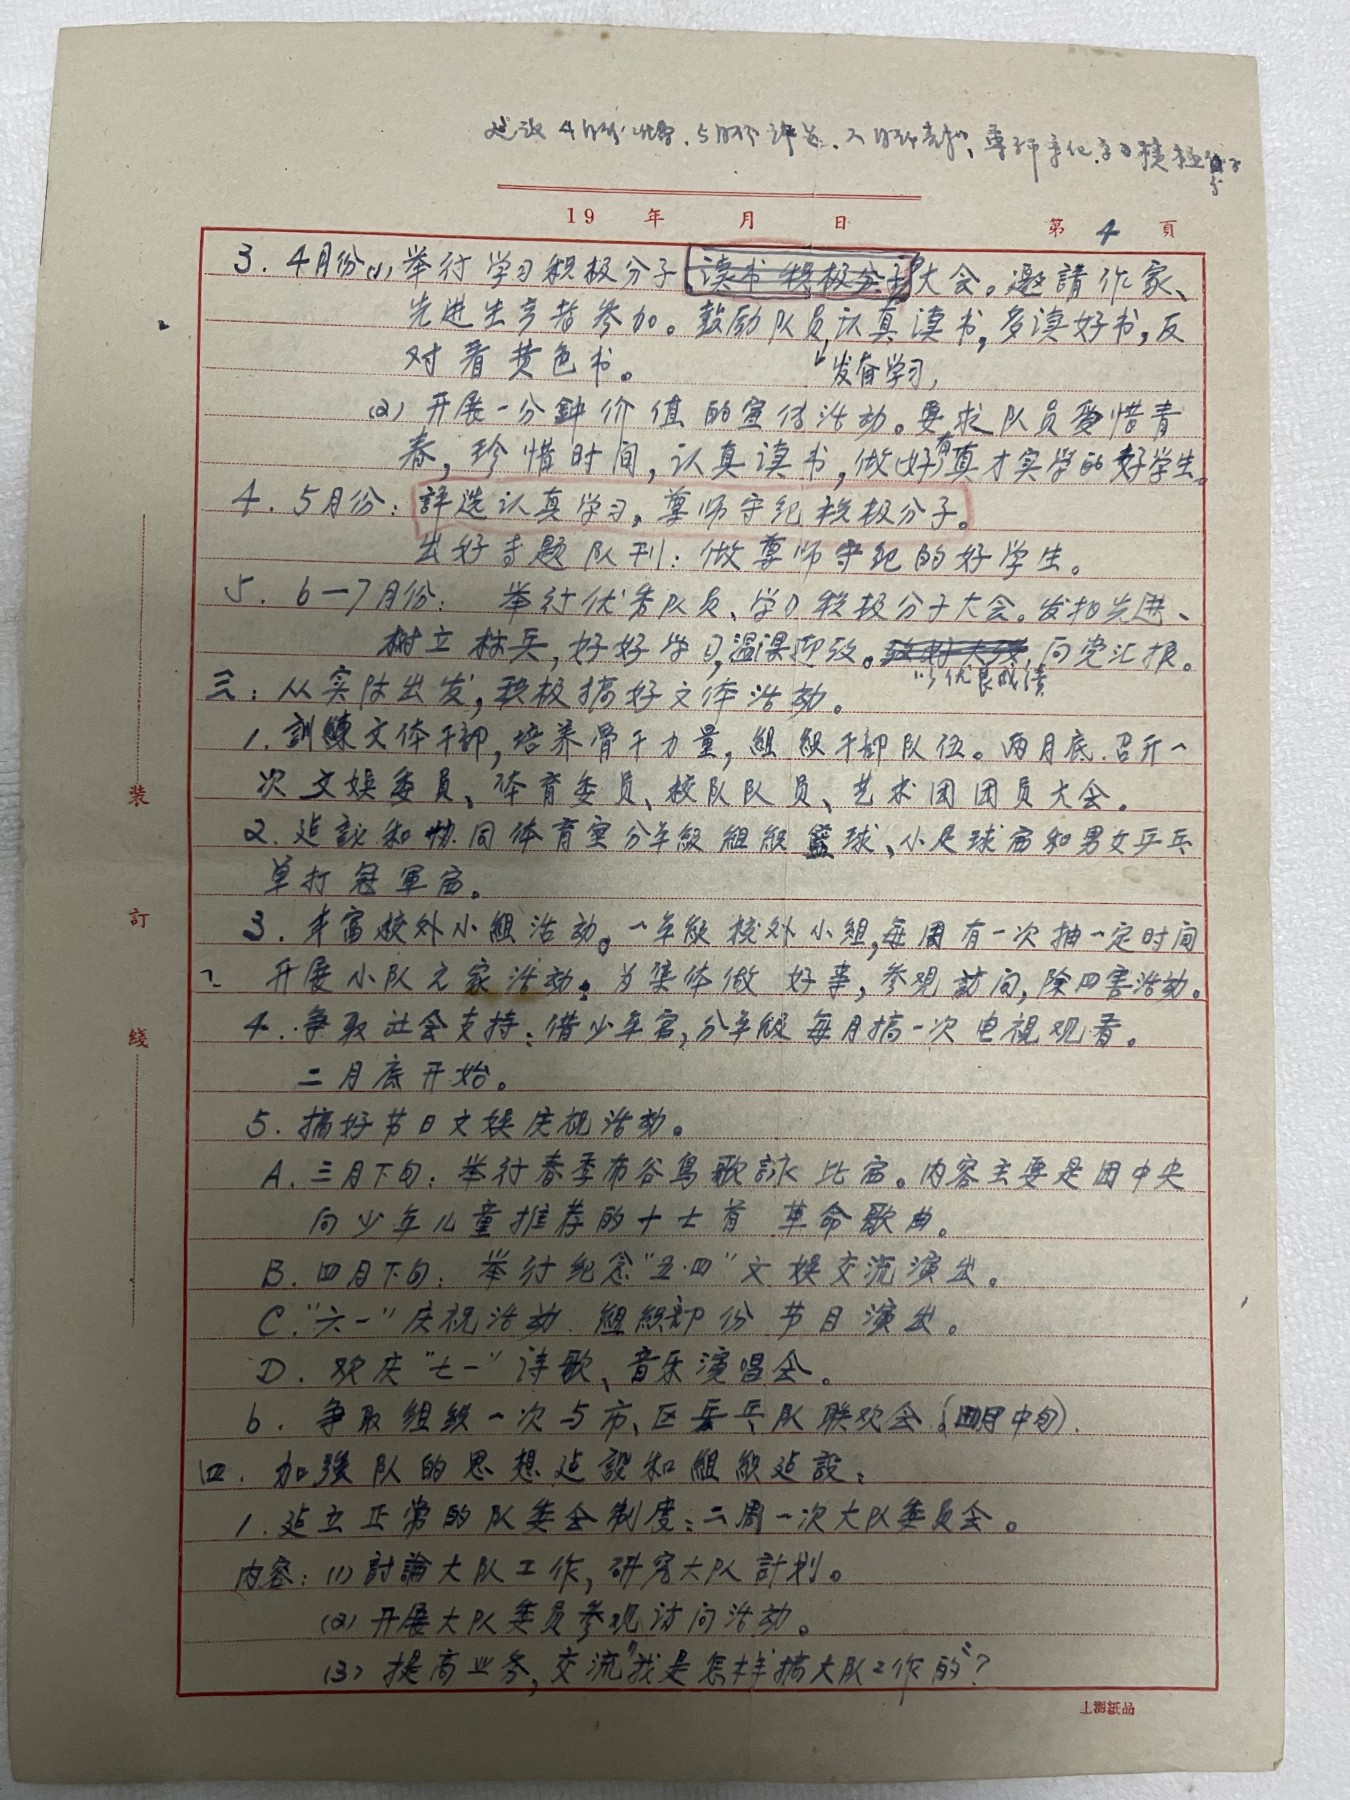 建议4月份 5月份评选、六月份表扬、尊师守纪、学习积极分子
19 年 月 日
第 4 頁
3. 4月份(1)举行学习积极分子读书积极分子大会。邀請作家、
先进生产者参加。鼓励队员认真读书,多读好书,反
对看黄色书。
发奋学习,
(2) 开展一分鈡价值的宣传活动。要求队员爱惜青
春,珍惜时间,认真读书,做好有真才实学的好学生。
4. 5月份:評选认真学习,尊师守纪积极分子。
出好专题队刊:做尊师守纪的好学生。
5. 6—7月份: 举行优秀队员、学习积极分子大会。发扬先进、
树立标兵,好好学习,温课迎考。 向党汇报。
以优良成绩
三:从实际出发,积极搞好文体活动。
1. 訓練文体干部,培养骨干力量,組织干部队伍。两月底召开一
次文娱委員、体育委员、校队队员、艺术团团员大会。
2. 建議和协同体育室分年級組織籃球、小足球賽和男女乒乓
单打冠軍賽。
3. 丰富校外小組活动。一年級校外小組,每周有一次抽一定时间
开展小队之家活动:为集体做好事,参观訪问,除四害活动。
4. 争取社会支持:借少年宫,分年級每月搞一次电視观看。
二月底开始。
5. 搞好节日文娱庆祝活动。
A. 三月下旬:举行春季布谷鸟歌詠比賽。内容主要是团中央
向少年儿童推荐的十七首革命歌曲。
B. 四月下旬:举行纪念"五·四"文娱交流演出。
C."六一"庆祝活动 組織部份节目演出。
D. 欢庆"七一"诗歌、音乐演唱会。
6. 争取組織一次与市、区乒乓队联欢会(四月中旬).
四. 加强队的思想建設和組織建設:
1. 建立正常的队委会制度:二周一次大队委员会。
内容:(1)討論大队工作,研究大队計划。
(2)开展大队委员参观访问活动。
(3)提高业务,交流"我是怎样搞大队工作的"?
装
訂
綫
上海紙品